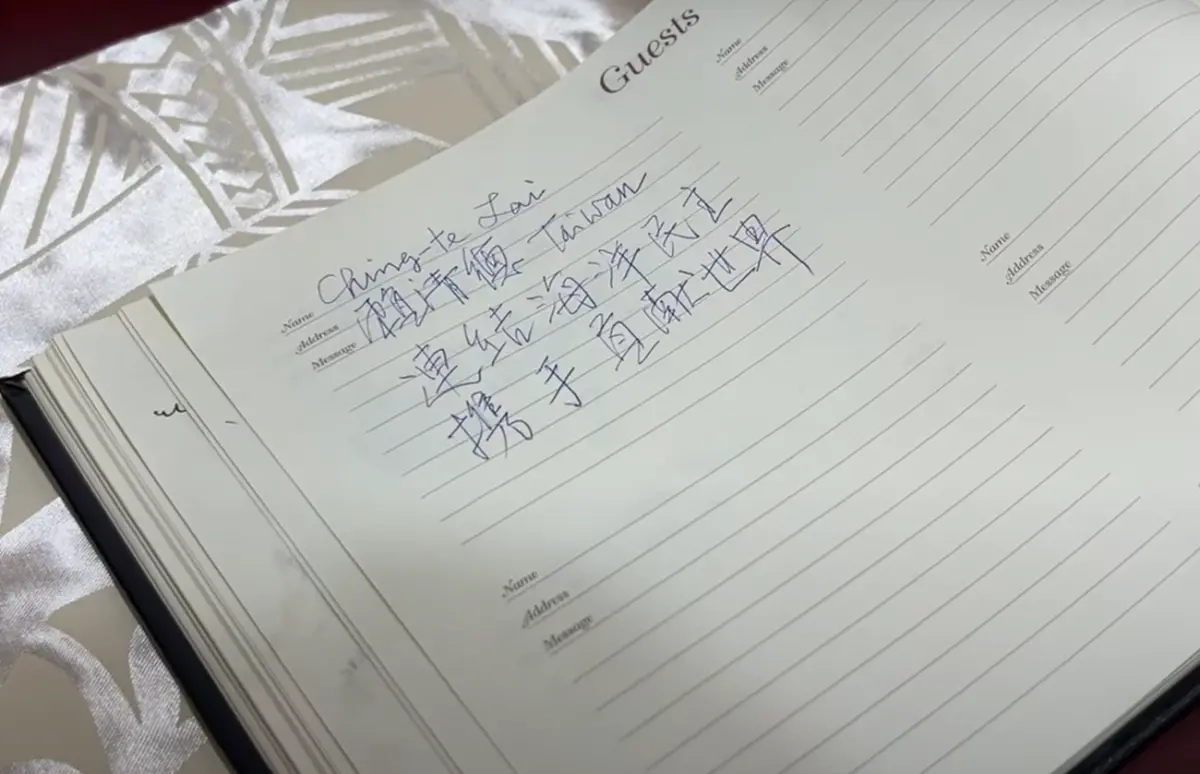 Guests
Name
Ching-te Lai
Address
賴清德 Taiwan
Message
連結海洋民主
携手貢献世界
Name
Address
Message
Name
Address
Message
Name
Address
Message